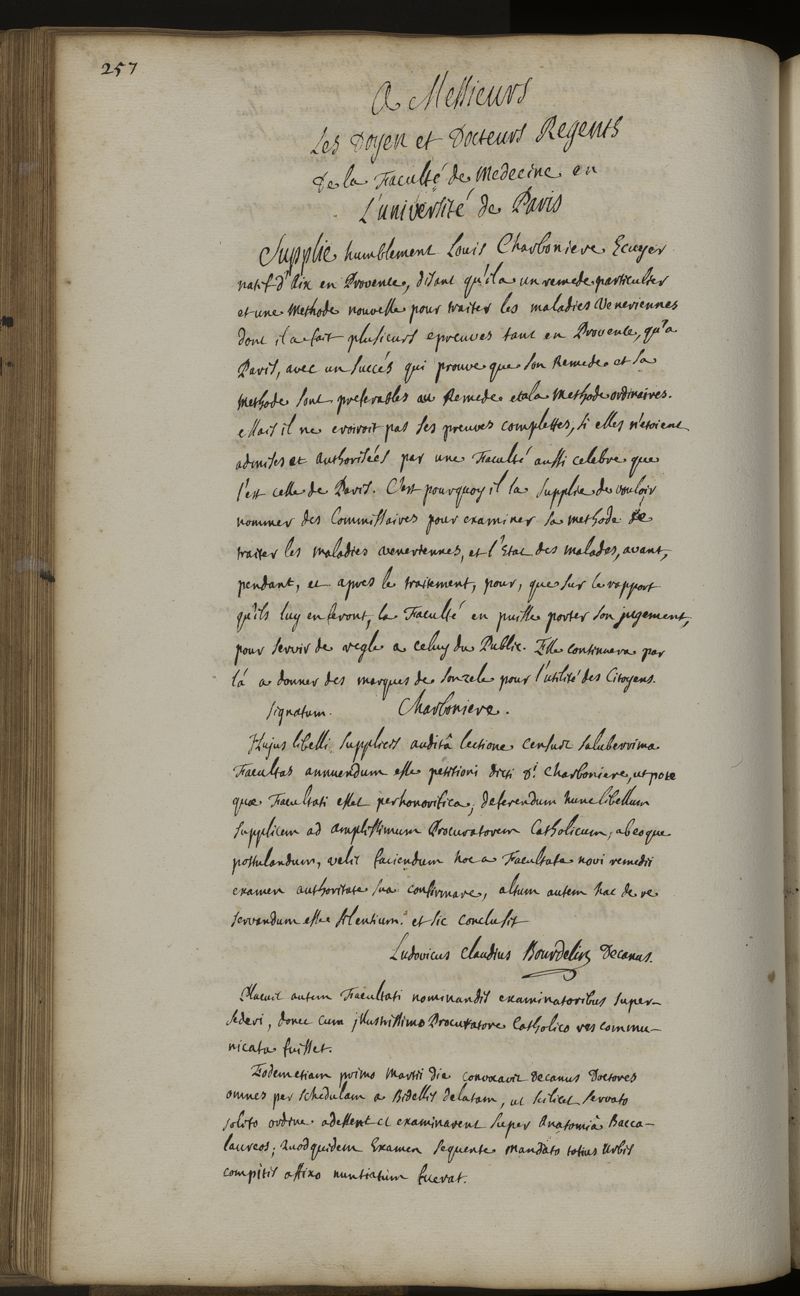 257
A Messieurs
Les Doyen et Docteurs Regents
De la Faculté de Medecine en
L'université de Paris
Supplie humblement Louis Charboniere Ecuyer
natif d'Aix en Provence, disant qu'il a un remede particulier
et une Methode nouvelle pour traiter les maladies Veneriennes
dont il a fait plusieurs epreuves tant en Provence, qu'a
Paris, avec un succés qui prouve que son Remede et sa
Methode sont preferables au Remede et a la Methode ordinaires.
Mais il ne croiroit pas ses preuves complettes, si elles n'etoient
admises et authorisées par une Faculté aussi celebre que
l'est celle de Paris. C'est pourquoy il la supplie de vouloir
nommer des Commissaires pour examiner sa methode de
traiter les maladies veneriennes, et l'Etat des malades, avant,
pendant, et apres le traitement, pour, que sur le rapport
qu'ils luy en feront, la Faculté en puisse porter son jugement,
pour servir de regle a celuy du Public. Elle continuera par
là a donner des marques de son zele pour l'utilité des Citoyens.
Signatum. Charboniere.
Hujus libelli supplicis auditâ lectione censuit saluberrima
Facultas annuendum esse petitioni dicti Dⁱ Charboniere, utpote
quæ Facultati esset perhonorifica, deferendum hunc libellum
supplicem ad amplissimum Procuratorem Catholicum, ab eoque
postulandum, velit faciendum hoc a Facultate novi remedii
examen authoritate sua confirmare, altum autem hac de re
servandum esse silentium. et sic conclusit
Ludovicus Claudius Bourdelin Decanus.
Placuit autem Facultati nominandis examinatoribus super-
sederi, donec cum jllustrissimo Procuratore Catholico res commu-
nicata fuisset.
Eodem etiam primo Martii die convocavit Decanus Doctores
omnes per schedulam a Bidellis delatam, ut scilicet servato
solito ordine adessent et examinarent super Anatomiâ Bacca-
laureos; quod quidem Examen sequente mandato totius Urbis
compitis affixo nuntiatum fuerat.